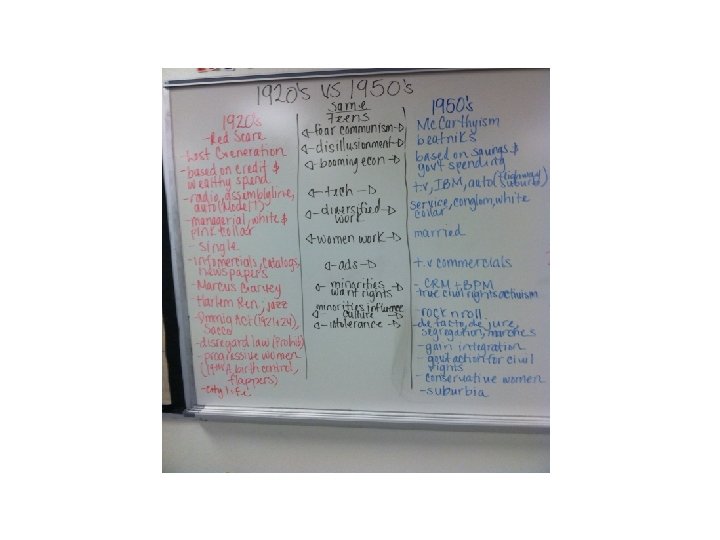 1920's VS 1950's
1920's
-Red Scare
-Lost Generation
-based on credit &
wealthy spend
-radio, assemblyline,
auto (Model T)
-managerial, white &
pink collar
- single
-infomercials, catalogs,
newspapers
-Marcus Garvey
Harlem Ren; jazz
Sacco
-disregard law (Prohib)
-progressive women
(19th A, birth control,
flappers)
-city life
Same
Teens
fear communism
disillusionment
booming econ
tech
diversified
work
women work
ads
minorities
want rights
minorities influence
culture
intolerance
1950's
McCarthyism
beatniks
based on savings &
gov't spending
tv, IBM, auto (highway)
suburbs
service, conglom, white
collar
married
t.v commercials
- CRM + BPM
true civil rights activism
-rock n roll
-de facto, de jure,
segregation, marches
-gain integration
- govt action for civil
rights
- conservative women
-suburbia